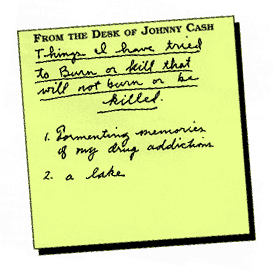 FROM THE DESK OF JOHNNY CASH
Things I have tried
to Burn or kill that
will not burn or be
killed.
1. Tormenting memories
of my drug addictions
2. a lake